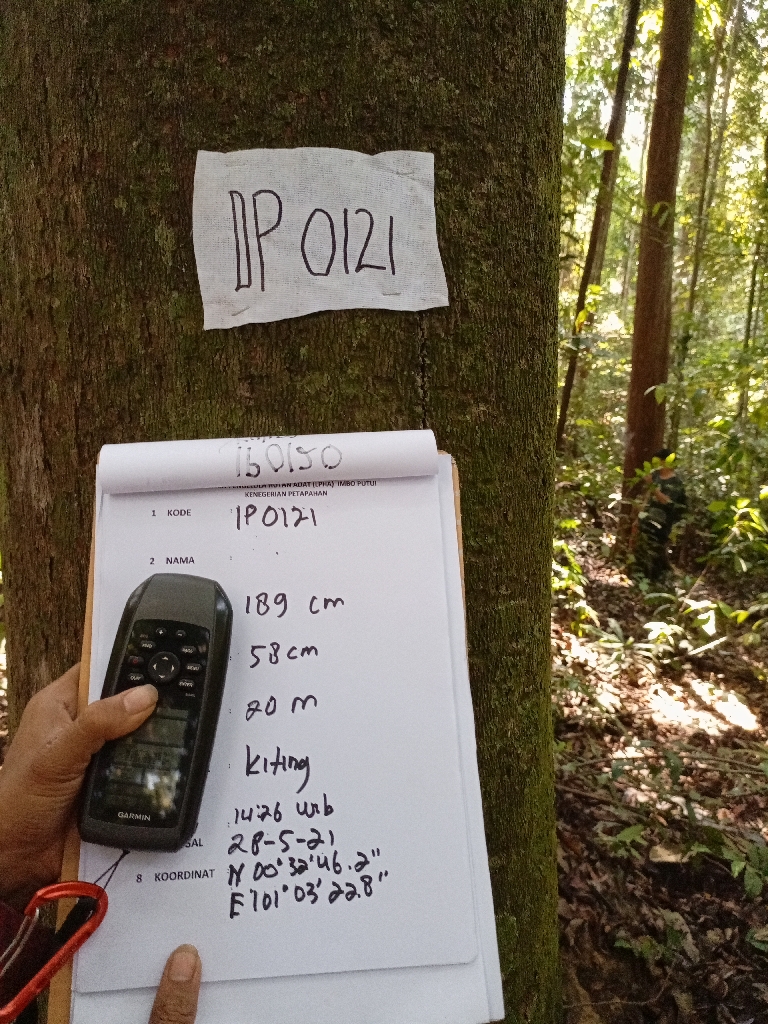 IP 0121
160150
PENGELOLA HUTAN ADAT (LPHA) IMBO PUTUI
KENEGERIAN PETAPAHAN
1 KODE IP0121
2 NAMA
: 189 cm
: 58 cm
: 20 m
: kiting
: 14:26 wib
28-5-21
8 KOORDINAT N 00°32'46.2"
E 101°03'22.8"
GARMIN